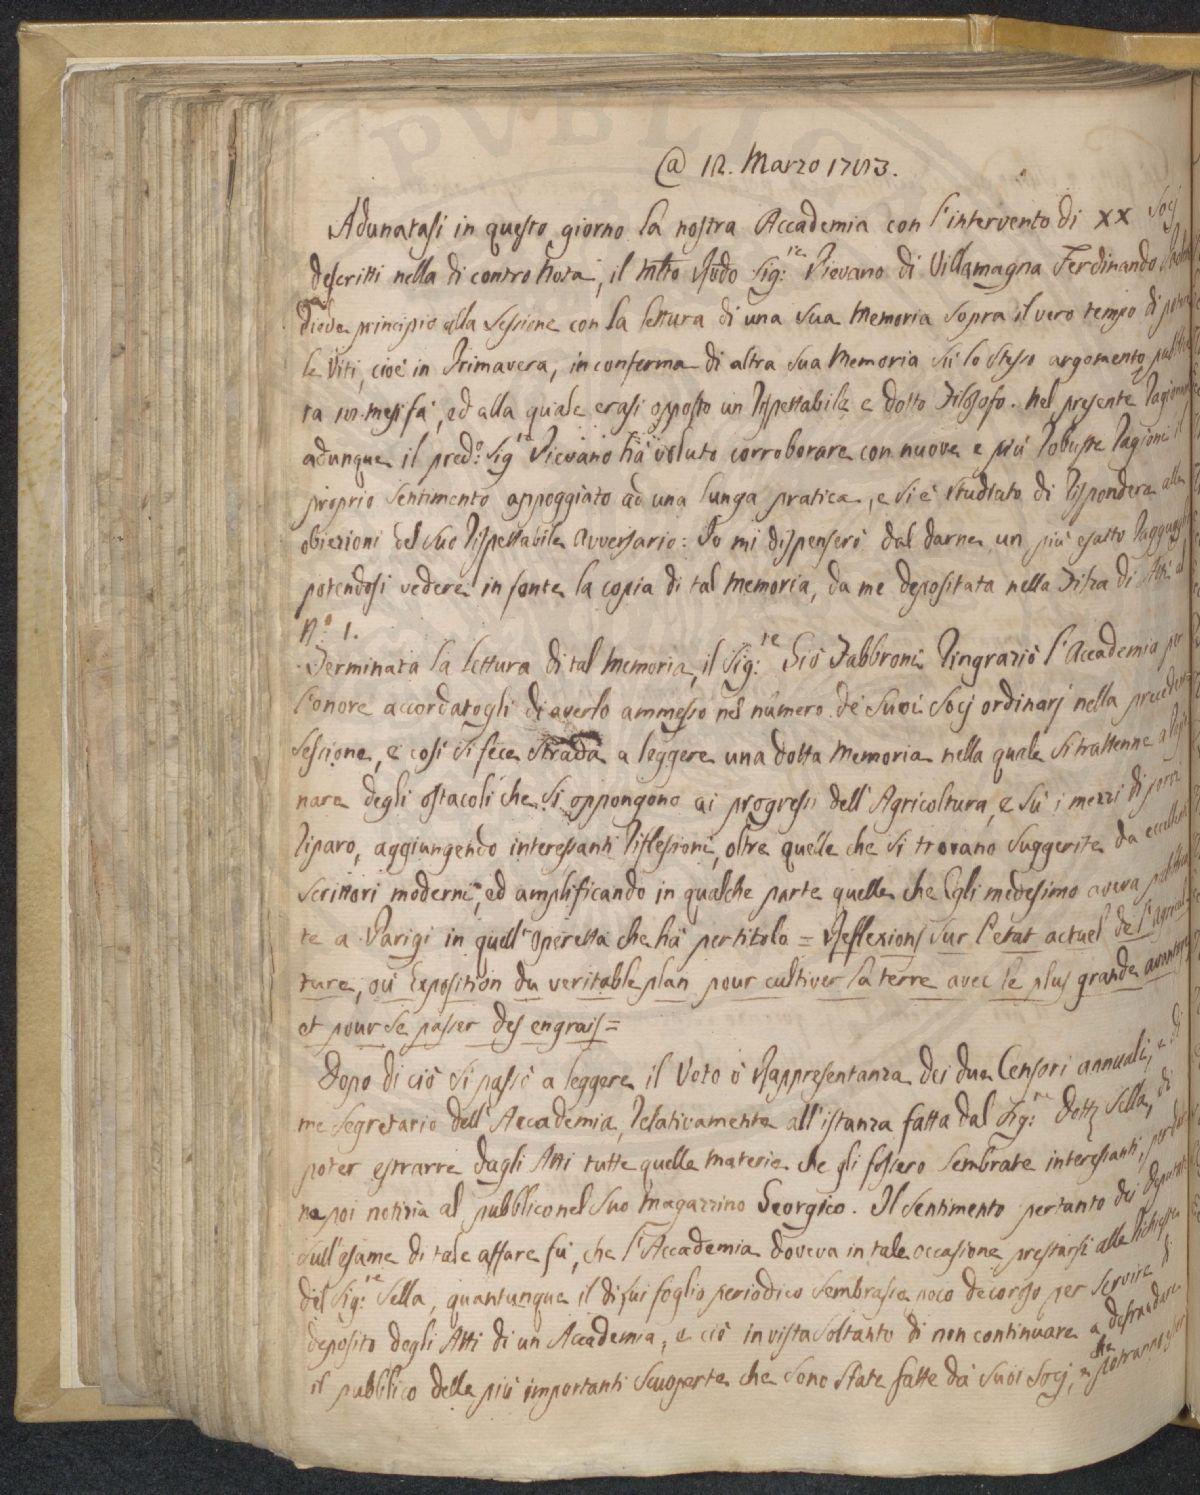 PVBLIC
@ 12. Marzo 1783.
Adunatasi in questo giorno la nostra Accademia con l'intervento di XX Socj
descritti nella di contro Nota, il Mto Rndo Sig:re Pievano di Villamagna Ferdinando
diede principio alla Sessione con la lettura di una Sua Memoria Sopra il vero tempo di potare
le Viti, cioè in Primavera, in conferma di altra Sua Memoria Sù lo Stesso argomento
ta mesi fà, ed alla quale erasi opposto un Rispettabile e dotto Filosofo. Nel presente
adunque il pred:o Sig:re Pievano hà voluto corroborare con nuove e più Robuste Ragioni il
proprio Sentimento appoggiato ad una lunga pratica, e Si è Studiato di Rispondere alle
obiezioni del Suo Rispettabile Avversario: Io mi dispenserò dal darne un più esatto Ragguaglio
potendosi vedere in fonte la copia di tal Memoria, da me depositata nella Filza di Atti al
N.o 1.
Terminata la lettura di tal Memoria, il Sig:re Giò Fabbroni Ringraziò l'Accademia per
l'onore accordatogli di averlo ammesso nel numero dè Suoi Socj ordinarj nella precedente
Sessione, e così Si fece Strada a leggere una dotta Memoria nella quale Si trattenne a
nare degli ostacoli che Si oppongono ai progressi dell'Agricoltura, e Sù i mezzi di porvi
Riparo, aggiungendo interessanti Riflessioni, oltre quelle che Si trovano Suggerite da eccellenti
Scrittori moderni, ed amplificando in qualche parte quelle che Egli medesimo aveva
te a Parigi in quell'Operetta che hà per titolo = Reflexions Sur l'etat actuel de l'Agricul
ture, où Exposition du veritable plan pour cultiver la terre avec le plus grande avantage
et pour se passer des engrais =
Dopo di ciò Si passò a leggere il Voto ò Rappresentanza dei due Censori annuali, e di
me Segretario dell'Accademia, Relativamente all'istanza fatta dal Sig:re Dott: Sella, di
poter estrarre dagli Atti tutte quelle materie che gli fossero Sembrate interessanti,
ne poi notizia al pubblico nel Suo Magazzino Georgico. Il Sentimento pertanto dei Deputati
Sull'esame di tale affare fù, che l'Accademia doveva in tale occasione prestarsi alle Richieste
del Sig:re Sella, quantunque il di lui foglio periodico Sembrasse poco decoroso per Servire di
deposito degli Atti di un Accademia, e ciò in vista Soltanto di non continuare a defraudare
il pubblico delle più importanti Scuoperte che Sono State fatte da Suoi Socj, e che potranno